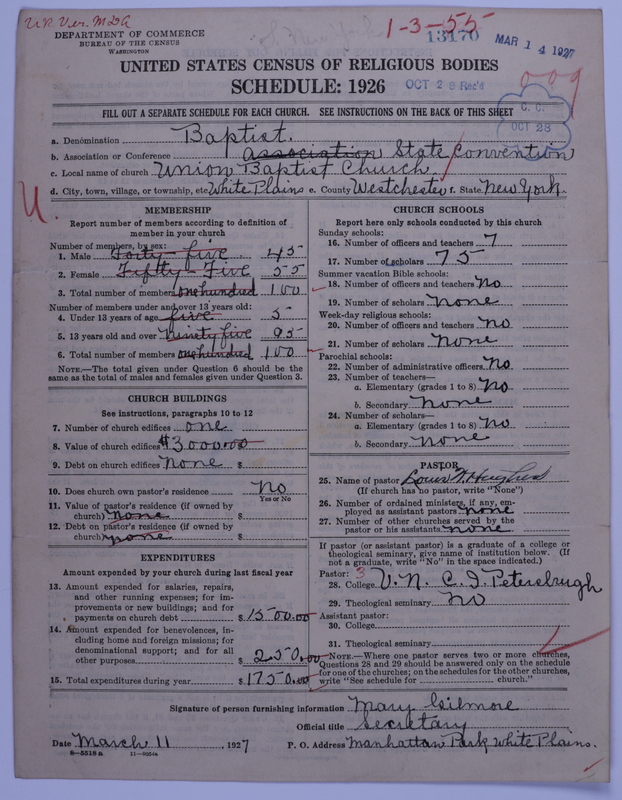 U.R. Ver. M.D.G.
1-3-55
13170
MAR 14 1927
DEPARTMENT OF COMMERCE
BUREAU OF THE CENSUS
WASHINGTON
UNITED STATES CENSUS OF RELIGIOUS BODIES
SCHEDULE: 1926
OCT 28 Rec'd
009
C. C.
OCT 28
FILL OUT A SEPARATE SCHEDULE FOR EACH CHURCH. SEE INSTRUCTIONS ON THE BACK OF THIS SHEET
a. Denomination Baptist.
b. Association or Conference Association State Convention
c. Local name of church Union Baptist Church.
d. City, town, village, or township, etc White Plains e. County Westchester f. State New York.
U
MEMBERSHIP
Report number of members according to definition of
member in your church
Number of members, by sex:
1. Male Forty-five 45
2. Female Fifty-Five 55
3. Total number of members one hundred 100
Number of members under and over 13 years old:
4. Under 13 years of age five 5
5. 13 years old and over Ninety five 95
6. Total number of members one hundred 100
NOTE.—The total given under Question 6 should be the
same as the total of males and females given under Question 3.
CHURCH BUILDINGS
See instructions, paragraphs 10 to 12
7. Number of church edifices one
8. Value of church edifices $3000.00
9. Debt on church edifices None $
10. Does church own pastor's residence No
Yes or No
11. Value of pastor's residence (if owned by
church) none $
12. Debt on pastor's residence (if owned by
church) none $
EXPENDITURES
Amount expended by your church during last fiscal year
13. Amount expended for salaries, repairs,
and other running expenses; for im-
provements or new buildings; and for
payments on church debt $ 1500.00
14. Amount expended for benevolences, in-
cluding home and foreign missions; for
denominational support; and for all
other purposes $ 250.00
15. Total expenditures during year $ 1750.00
CHURCH SCHOOLS
Report here only schools conducted by this church
Sunday schools:
16. Number of officers and teachers 7
17. Number of scholars 75
Summer vacation Bible schools:
18. Number of officers and teachers No
19. Number of scholars None
Week-day religious schools:
20. Number of officers and teachers No
21. Number of scholars None
Parochial schools:
22. Number of administrative officers No
23. Number of teachers—
a. Elementary (grades 1 to 8) No
b. Secondary None
24. Number of scholars—
a. Elementary (grades 1 to 8) No
b. Secondary None
PASTOR
25. Name of pastor Louis N. Hughes
(If church has no pastor, write "None")
26. Number of ordained ministers, if any, em-
ployed as assistant pastors none
27. Number of other churches served by the
pastor or his assistants none
If pastor (or assistant pastor) is a graduate of a college or
theological seminary, give name of institution below. (If
not a graduate, write "No" in the space indicated.)
Pastor: 3
28. College V. N. C. I. Petersburgh
29. Theological seminary No
Assistant pastor:
30. College
31. Theological seminary
NOTE.—Where one pastor serves two or more churches,
Questions 28 and 29 should be answered only on the schedule
for one of the churches; on the schedules for the other churches,
write "See schedule for church."
Signature of person furnishing information Mary Gilmore
Official title Secretary
Date March 11, 1927 P. O. Address Manhattan Park White Plains.
8-5518 a 11-9054a